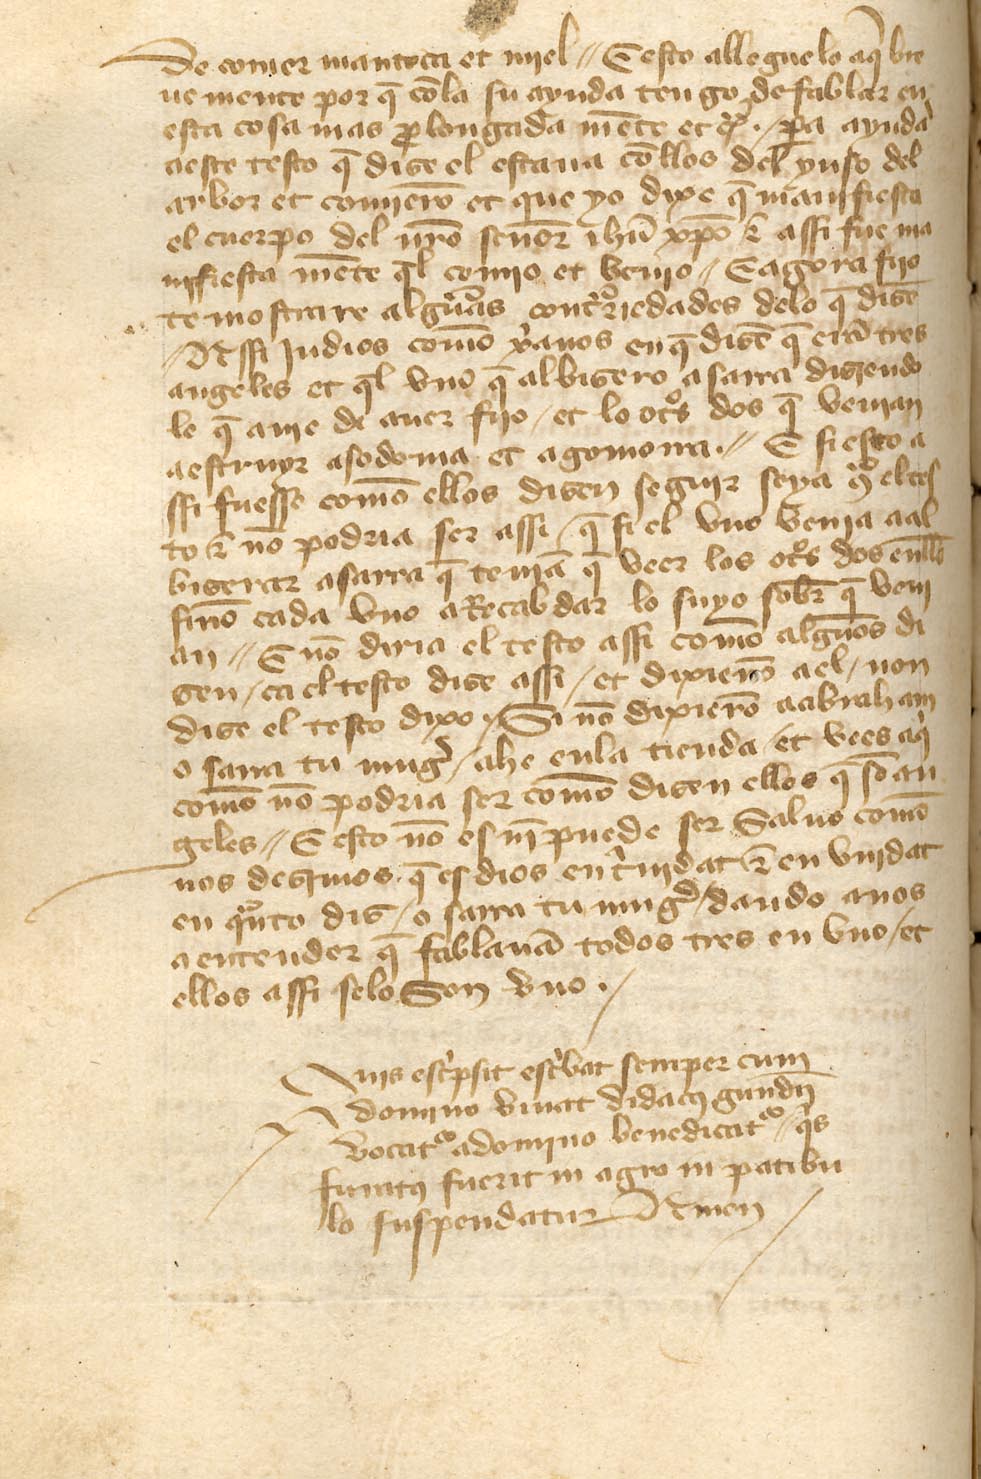 De comer manteca et mjel // E esto alleguelo aq̃ bre
ue mente por q̃ cõla su ayuda tengo de fablar en
esta cosa mas prolongada mẽte et cr̃. / pa ayuda
aeste testo q̃ dize el estaua cõ llos del yuso del
arbor et comierõ et que yo dixe q̃ manifiesta
el cuerpo del nr̃o señor ihũ xp̃o & assi fue ma
njfiesta mẽte q̃l comio et beuio // E agora fijo
te mostrare algũas contrariedades delo q̃ dizẽ
Assi Judios como xr̃anos en q̃ dizẽ q̃ erã tres
angeles et q̃l vno q̃ albizero a sarra diziendo
le q̃ auie de auer fijo / et lo otr̃s dos q̃ venian
a estruyr a sodoma et a gomorra. // E si esto a
ssi fuesse como ellos dizen seguir seya q̃ el tes
to & nõ podria ser assi / q̃ si el vno venja a al
bizerar a sarra q̃ teniã q̃ veer los otr̃s dos enllo
sinõ cada vno a Recabdar lo suyo sobr̃ q̃ veni
an // E nõ diria el testo assi como algũos di
zen / ca el testo dize assi / et dixierõ a el / non
dize el testo dixo / Si nõ dixierõ a abraham
o sarra tu muger̃ / ahe enla tienda / et vees aq̃
como nõ podria ser como dizen ellos q̃ sõ an
geles // E esto nõ es nĩ puede ser Saluo como
nos dezimos q̃ es dios en trinidat & en vnidat
en quãto diz / o sarra tu muger̃ / dando anos
a entender q̃ fablauã todos tres en vno / et
ellos assi selo Son vno . /
Quis escripsit escribat semper cum
domino viuat didacus gundĩ
vocatr̃ a domino benedicatr̃ // q̃s
furatus fuerit in agro in patibu
lo suspendatur Amen /